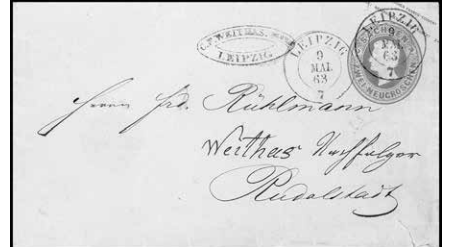 C. F. WEITHAS,
LEIPZIG.
LEIPZIG
9
MAI.
63
7
LEIPZIG
9
MAI.
63
7
ZWEI NEUGROSCHEN
Herrn Frd. Rühlmann
Weithas Nachfolger
Rudolstadt